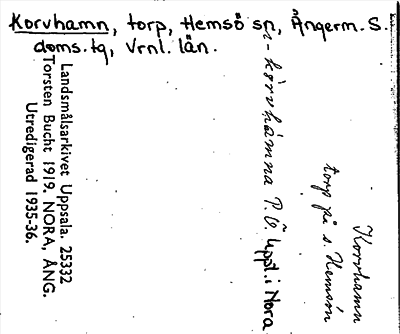 Korvhamn, torp, Hemsö sn, Ångerm. S.
doms.tg, Vrnl. län.
Landsmålsarkivet Uppsala. 25332
Torsten Bucht 1919. NORA, ÅNG.
Utredigerad 1935-36.
Uppl. i Nora
Korvhamn
torp på s. Hemsön